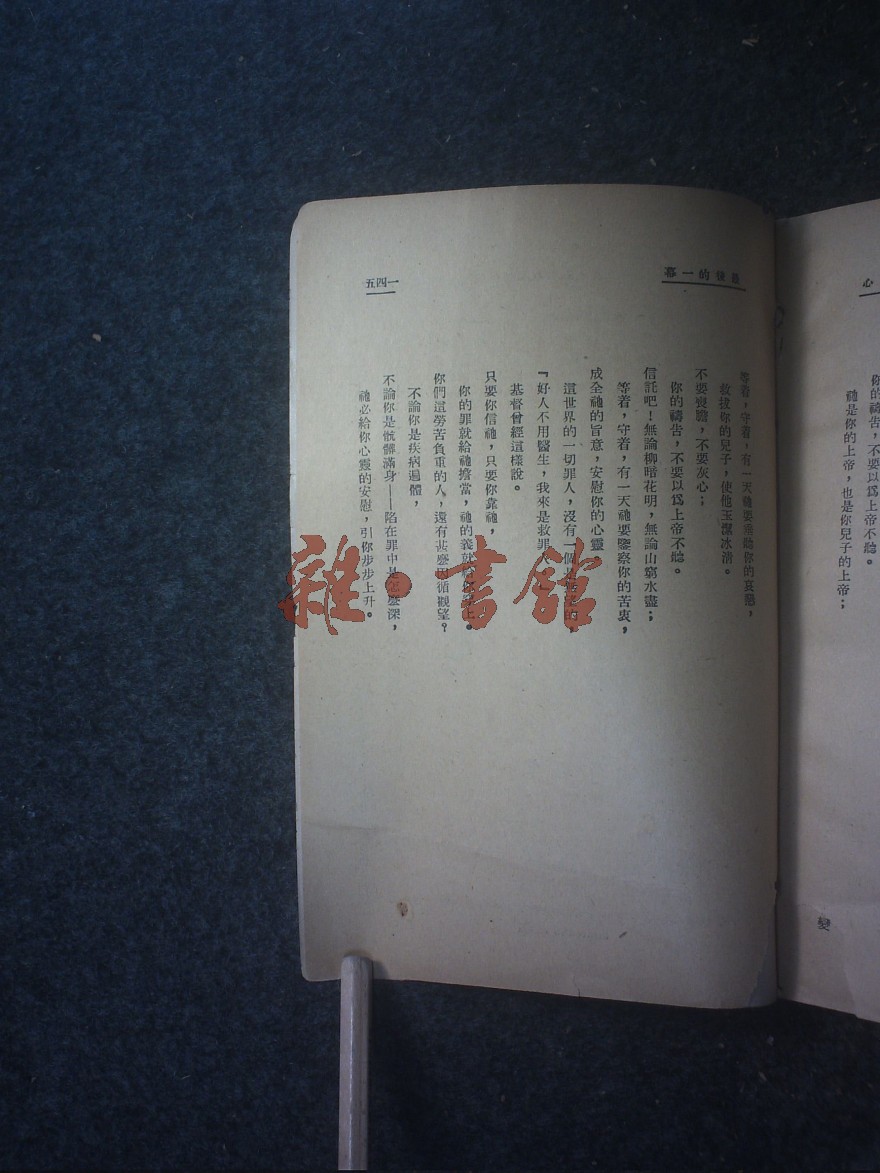 心
你的禱告，不要以爲上帝不聽。
祂是你的上帝，也是你兒子的上帝；
變
最後的一幕
等着，守着，有一天祂要垂聽你的哀懇，
救拔你的兒子，使他玉潔冰清。
不要喪膽，不要灰心；
你的禱告，不要以爲上帝不聽。
信託吧！無論柳暗花明，無論山窮水盡；
等着，守着，有一天祂要鑒察你的苦衷，
成全祂的旨意，安慰你的心靈
這世界的一切罪人，沒有一個
『好人不用醫生，我來是救罪人
基督曾經這樣說。
只要你信祂，只要你靠祂，
你的罪就給祂擔當，祂的義就 上。
你們這勞苦負重的人，還有甚麼因循觀望？
不論你是疾病遍體，
不論你是骯髒滿身——陷在罪中是怎麼深，
祂必給你心靈的安慰，引你步步上升。
一四五
雜·書館